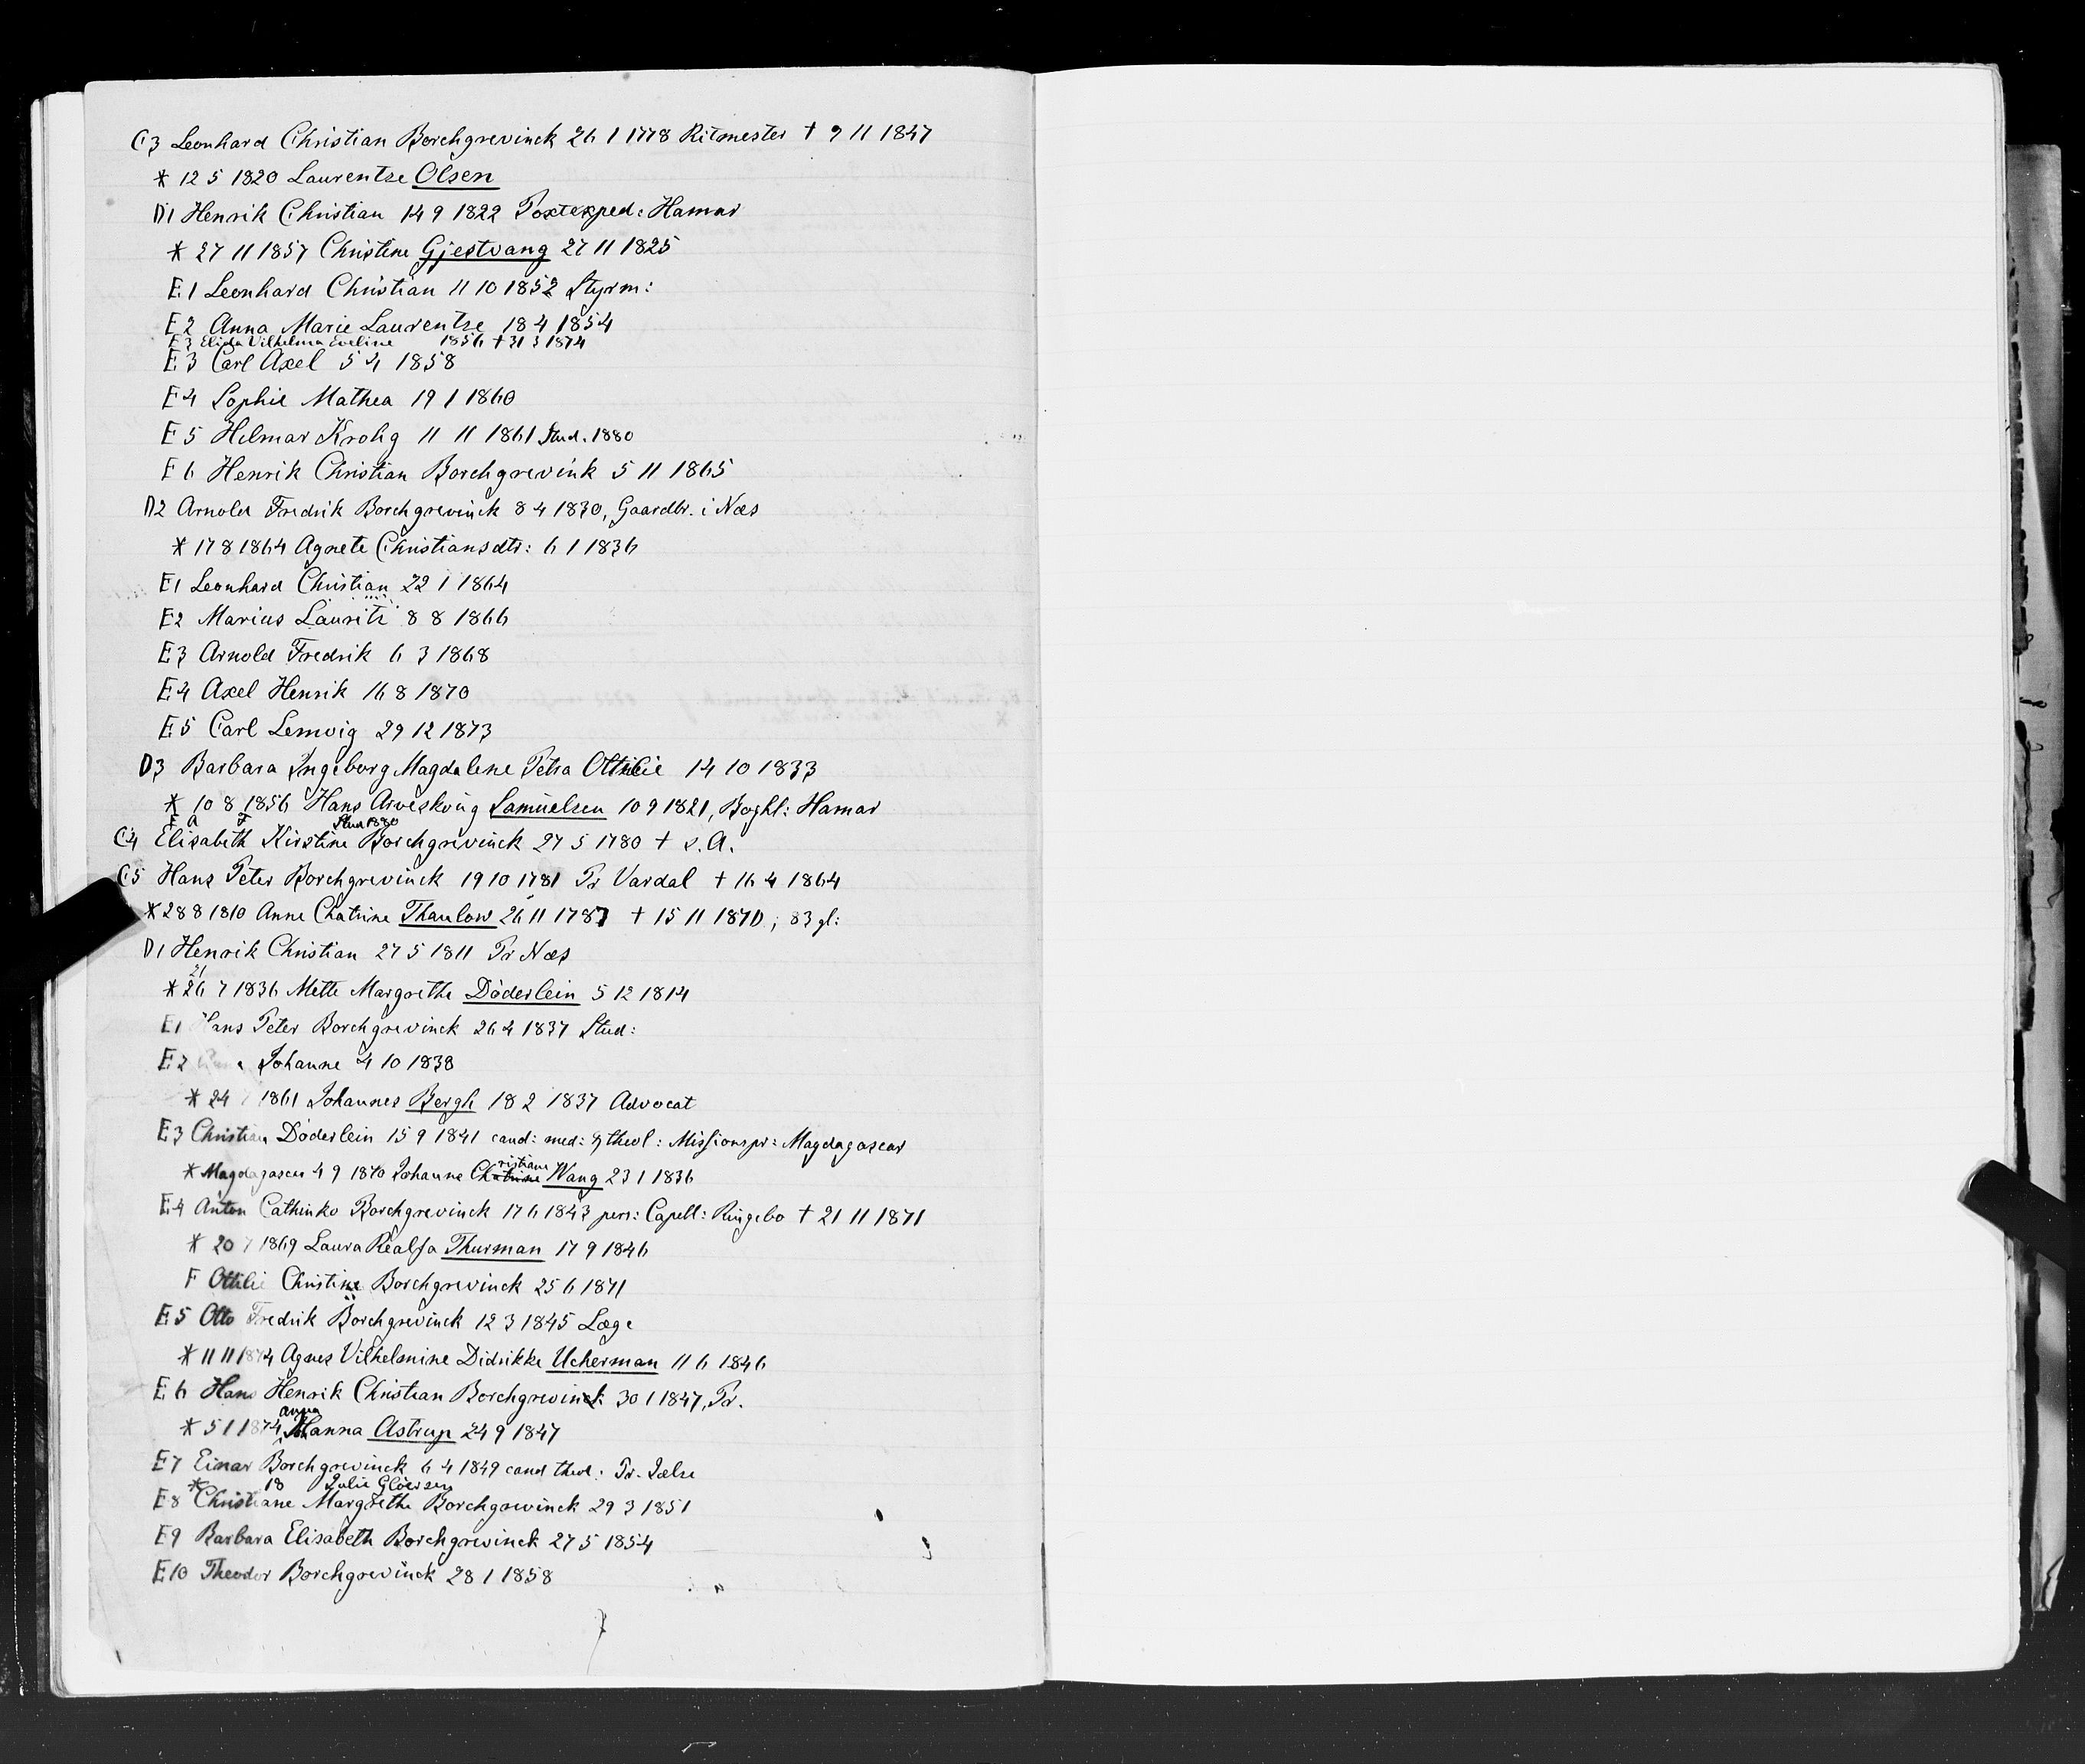 C3 Leonhard Christian Borchgrevinck 26 1 1778 Ritmester † 9 11 1847
* 12 5 1820 Laurentze Olsen
D1 Henrik Christian 14 9 1822 Postexped: Hamar
* 27 11 1857 Christine Gjestvang 27 11 1825
E1 Leonhard Christian 11 10 1852 Styrm:
E2 Anna Marie Laurentze 18 4 1854
E3 Elida Vilhelma Eveline 1856 † 31 3 1874
E3 Carl Axel 5 4 1858
E4 Sophie Mathea 19 1 1860
E5 Hilmar Krohg 11 11 1861 Stud. 1880
E6 Henrik Christian Borchgrevink 5 11 1865
D2 Arnold Fredrik Borchgrevinck 8 4 1830, Gaardbr. i Næs
* 17 8 1864 Agnete Christiansdtr: 6 1 1836
E1 Leonhard Christian 22 1 1864
E2 Marius Lauritz 8 8 1866
E3 Arnold Fredrik 6 3 1868
E4 Axel Henrik 16 8 1870
E5 Carl Lemvig 29 12 1873
D3 Barbara Ingeborg Magdalene Petra Ottilie 14 10 1833
* 10 8 1856 Hans Samuelsen 10 9 1821, Boghl: Hamar
E A F Stud 1880
C4 Elisabeth Kirstine Borchgrevinck 27 5 1780 † s. A.
C5 Hans Peter Borchgrevinck 19 10 1781 Pr Vardal † 16 4 1864
* 28 8 1810 Anne Chatrine Thaulow 26 11 1787 † 15 11 1870; 83 gl:
D1 Henrik Christian 27 5 1811 Pr Næs
21
* 26 7 1836 Mette Margrethe Döderlein 5 12 1814
E1 Hans Peter Borchgrevinck 26 4 1837 Stud:
E2 Johanne 4 10 1838
* 24 1861 Johannes Bergh 18 2 1837 Advocat
E3 Christian Döderlein 15 9 1841 cand: med: & theol: Missionspr: Magdagascar
ristiane
* Magdagascar 4 9 1870 Johanne Chatrine Wang 23 1 1836
E4 Anton Cathinko Borchgrevinck 17 6 1843 pers: Capell: Ringebo † 21 11 1871
* 20 7 1869 Laura Thurman 17 9 1846
F Ottilie Christine Borchgrevinck 25 6 1871
E5 Otto Fredrik Borchgrevinck 12 3 1845 Læge
* 11 11 1874 Agnes Vilhelmine Didrikke Ucherman 11 6 1846
E6 Hans Henrik Christian Borchgrevinck 30 1 1847, Pr.
anna
* 5 1 1874 Hanna Astrup 24 9 1847
E7 Einar Borchgrevinck 6 4 1849 cand theol: Pr. Jælse
* 18 Julie Glöersen
E8 Christiane Margrethe Borchgrevinck 29 3 1851
E9 Barbara Elisabeth Borchgrevinck 27 5 1854
E10 Theodor Borchgrevinck 28 1 1858